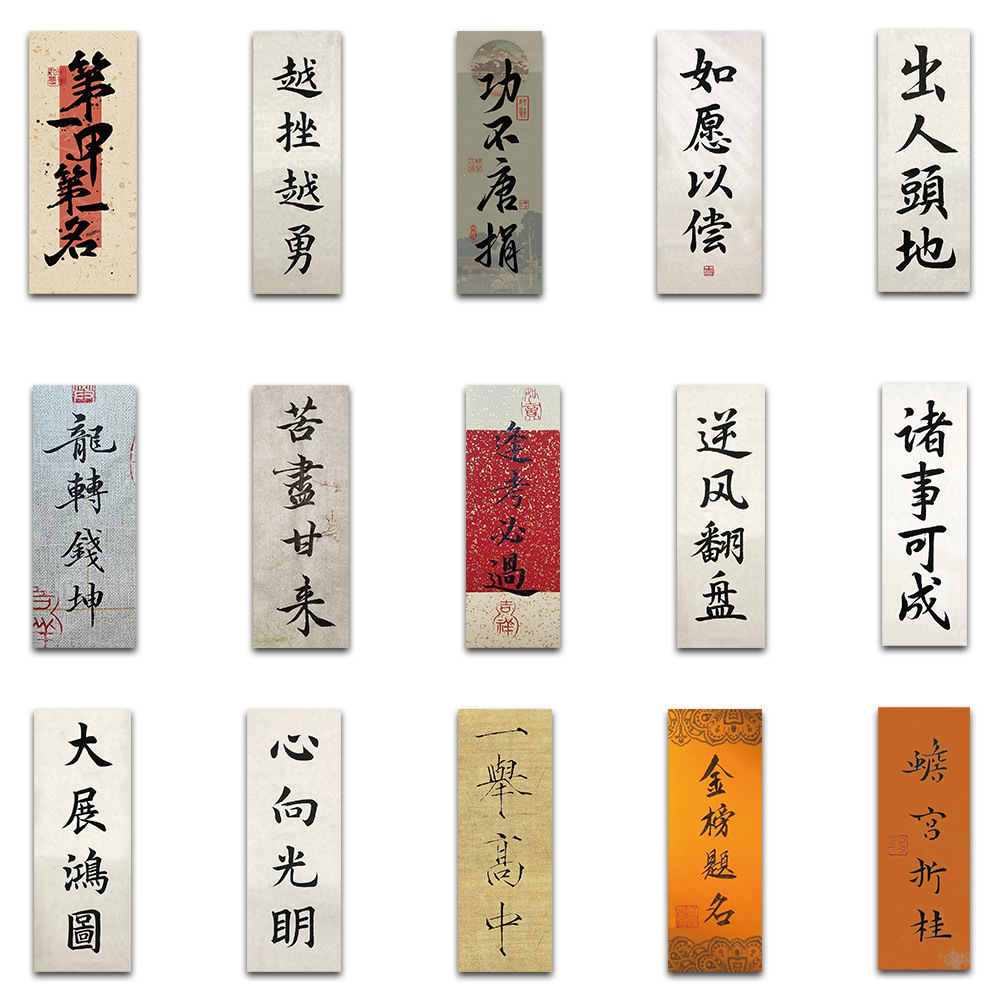 第一甲第一名
越挫越勇
功不唐捐
如愿以偿
出人頭地
龍轉錢坤
苦盡甘来
逢考必過
吉祥
逆风翻盘
诸事可成
大展鴻圖
心向光明
一舉高中
金榜題名
蟾宮折桂